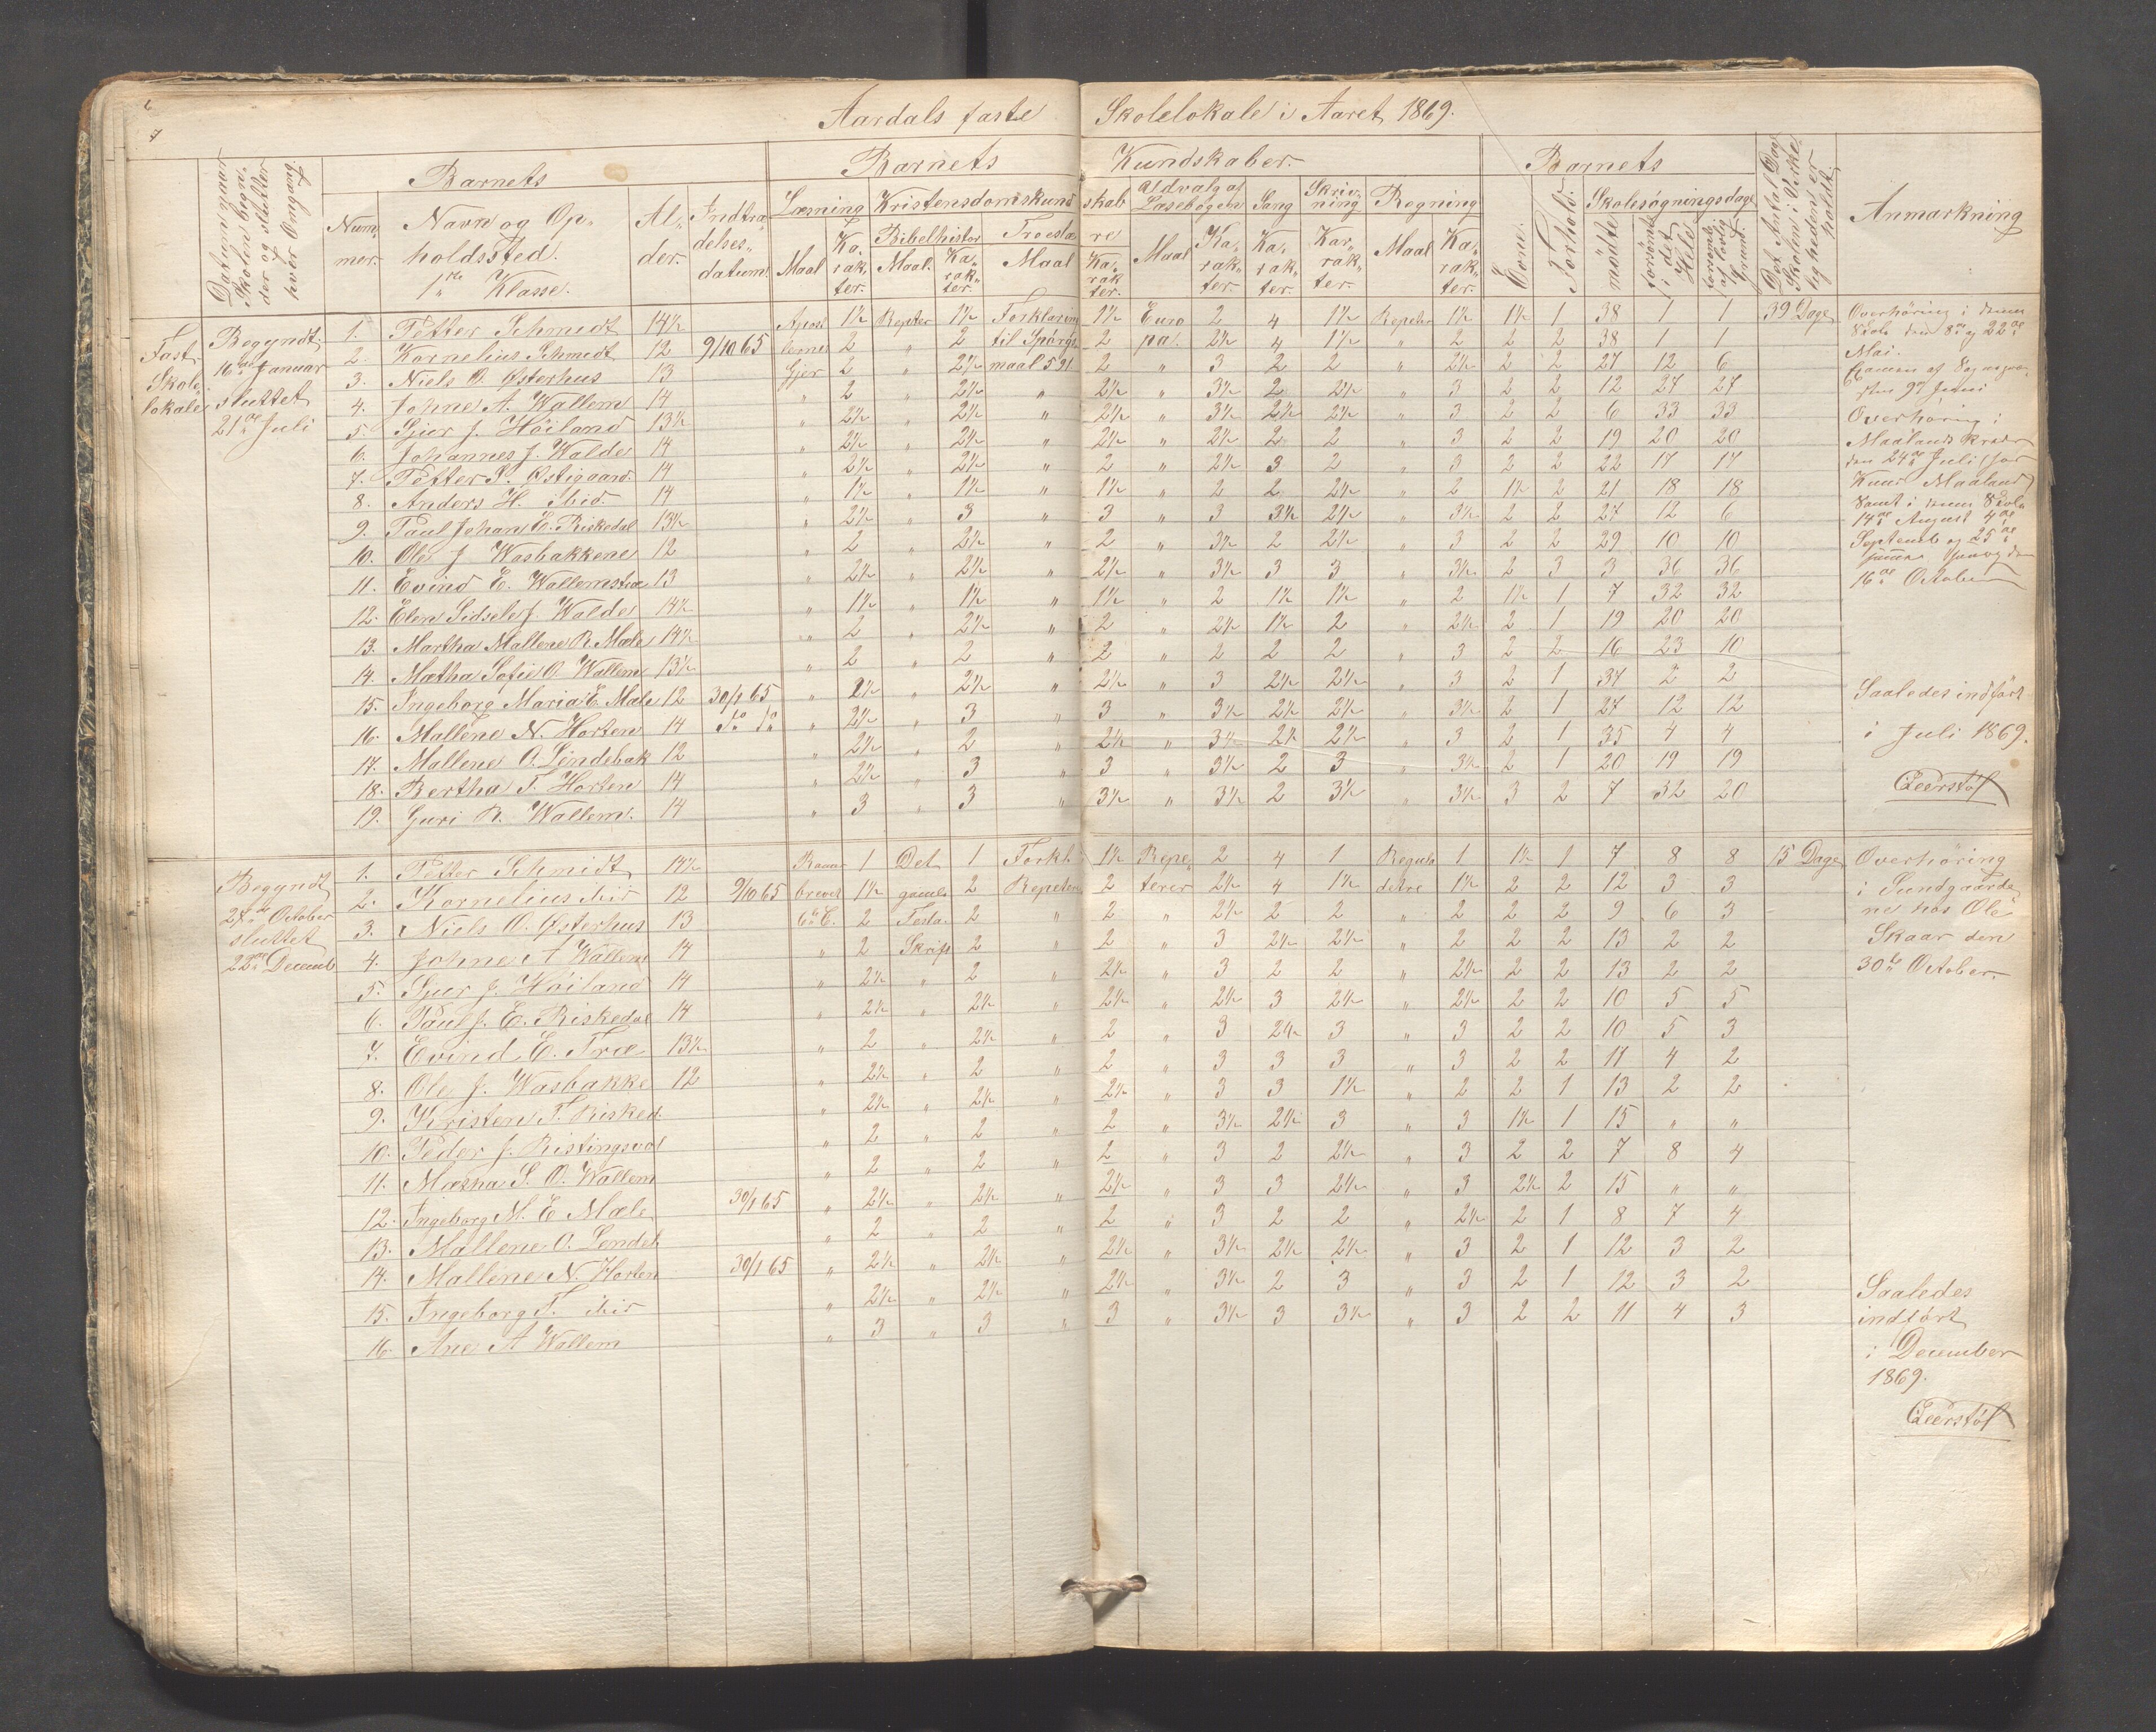 6
7
Aardals faste Skolelokale i Aaret 1869.
Datum naar Skolen begynder og slutter hver Omgang.
Barnets
Num- mer.
Navn og Opholdssted. 1ste Klasse.
Alder.
Indtrædelses datum.
Barnets Kundskaber.
Læsning Kristendomskundskab
Maal Karakter.
Bibelhistor Maal. Karakter.
Troeslære Maal Karakter.
Udvalg af Læsebogen Maal Karakter.
Sang Karakter.
Skrivning Karakter.
Regning Maal Karakter.
Barnets
Evne. Forhold.
Skolesøgningsdage
mødte forsømte i det Hele forsømte af lovlig Grund.
Det Antal Dage Skolen i Virkeligheden er holdt.
Anmærkning
Fast Skolelokale
Begyndt 16de Januar sluttet 21de Juli
1. Petter Schmidt 14½ Apost 1½ Repter 1½ Forklaring 1½ Euro 2 4 1½ Repeter 1½ 1½ 1 38 1 1 39 Dage
2. Kornelius Schmidt 12 9/10 65 lernes 2 " 2 til Spørgs 2 pa. 2½ 4 1½ " 2 2 2 38 1 1
3. Niels O. Østerhus 13 Gjer 2 " 2½ maal 521 2 " 3 2 2 " 2½ 2 2 27 12 6
4. Johne A. Wallem 14 " 2 " 2½ " 2½ " 3½ 2 2½ " 3 2 2 12 27 27
5. Sjur J. Høiland 13½ " 2½ " 2½ " 2½ " 3½ 2½ 2½ " 3 2 2 6 33 33
6. Johannes J. Walde 14 " 2½ " 2½ " 2½ " 2½ 2 2 " 3 2 2 19 20 20
7. Petter S. Østigaard. 14 " 2½ " 2½ " 2 " 2½ 3 2 " 3 2 2 22 17 17
8. Anders H. ibid. 14 " 1½ " 1½ " 1½ " 2 2 2½ " 2 1½ 2 21 18 18
9. Paul Johan E. Riskedal 13½ " 2½ " 3 " 3 " 3 3½ 2½ " 3½ 2 2 27 12 6
10. Ole J. Wasbakkene 12 " 2 " 2½ " 2 " 3½ 2 2½ " 3 2 2 29 10 10
11. Evind E. Wallemstræ 13 " 2½ " 2½ " 2½ " 3½ 3 3 " 3½ 2 3 3 36 36
12. Elen Sidsele J. Walde 14½ " 1½ " 1½ " 1½ " 2 1½ 1½ " 2 1½ 1 7 32 32
13. Martha Mallene R. Mæle 14½ " 2 " 2½ " 2 " 2½ 1½ 2 " 2½ 2 1 19 20 20
14. Mætha Sofie O. Wallem 13½ " 2 " 2 " 2 " 2 2 2 " 3 2 2 16 23 10
15. Ingeborg Maria E Mæle 12 30/1 65 " 2½ " 2½ " 2½ " 3 2½ 2½ " 3 2 1 37 2 2
16. Mallene N. Horten 14 do do " 2½ " 3 " 3 " 3½ 2½ 2½ " 3½ 2 1 27 12 12
17. Mallene O. Lindebæk 12 " 2½ " 2 " 2½ " 3½ 2½ 2½ " 3 2 1 35 4 4
18. Bertha T. Horten 14 " 2½ " 3 " 3 " 3½ 2 3 " 3½ 2 1 20 19 19
19. Guri R. Wallem. 14 " 3 " 3 " 3½ " 3½ 2 3½ " 3½ 3 2 7 32 20
Overhøring i denne
Skole den 8de og 22de
Mai.
Examen af Sognepræ-
sten 9de Juni
Overhøring i
Maalands Kreds
den 24de Juli hos
Knud Maaland
Samt i denne Skole
14de August 4de
Septemb og 25de
16de October
Saaledes indført
i Juli 1869.
Leerstøl
Begyndt 27de October sluttet 22de Decemb
1. Petter Schmidt 14½ Romer 1 Det 1 Forkl. 1½ Repe 2 4 1 Regula 1 1½ 1 7 8 8 15 Dage
2. Kornelius ibid 12 9/10 65 brevet 1½ gamle 2 Repeter 2 terer 2½ 4 1½ detre 1½ 2 2 12 3 3
3. Niels O. Østerhus 13 6te C. 2 Testa. 2 " 2 " 2½ 2 2 " 2 2 2 9 6 3
4. Johne A Wallem 14 " 2 Skrift 2 " 2 " 3 2½ 2½ " 2 2 2 13 2 2
5. Sjur J. Høiland 14 " 2½ " 2 " 2½ " 3 2 2 " 2½ 2 2 13 2 2
6. Paul J. E. Riskedal 14 " 2½ " 2½ " 2½ " 2½ 3 2½ " 2½ 2 2 10 5 5
7. Evind E. Træ 13½ " 2 " 2½ " 2 " 3 2½ 3 " 3 2 2 10 5 3
8. Ole J. Wasbakke 12 " 2½ " 2 " 2 " 3 3 3 " 3 2 2 11 4 2
9. Kristen T. Risked. " 2½ " 2½ " 2½ " 3 3 1½ " 2 2 1 13 2 2
10. Peder J. Ristingsvol " 2 " 2 " 2 " 3½ 2½ 3 " 3 1½ 1 15 " "
11. Mætha S. O. Wallem " 2 " 2 " 2 " 3 2 2½ " 3 2 2 7 8 4
12. Ingeborg M. E Mæle. 30/1 65 " 2½ " 2½ " 2½ " 3 3 2½ " 3 2½ 2 15 " "
13. Mallene O. Lendeb " 2 " 2 " 2 " 3 2 2 " 2½ 2 1 8 7 4
14. Mallene N. Horten 30/1 65 " 2½ " 2½ " 2½ " 3½ 2½ 2½ " 3 2 1 12 3 2
15. Ingeborg T. ibid " 2½ " 2½ " 2½ " 3½ 2 3 " 3 2 1 12 3 2
16. Ane A Wallem " 3 " 3 " 3 " 3½ 3 3½ " 3 2 2 11 4 3
Overhøring
i Sundgaarde
ne hos Ole
Skaar den
30te October.
Saaledes
indført
i December
1869.
Leerstøl